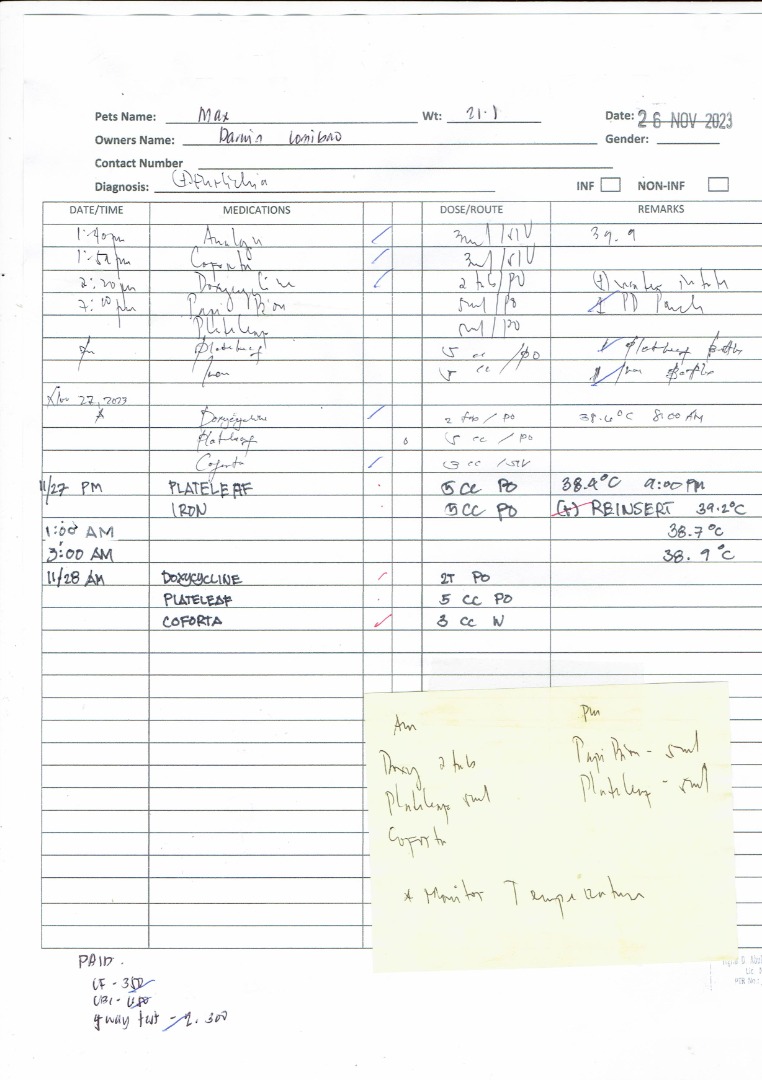 Pets Name: Max Wt: 21.1 Date: 26 NOV 2023
Owners Name: Darwin Gender:
Contact Number
Diagnosis: (+) Ehrlichia INF NON-INF
DATE/TIME MEDICATIONS DOSE/ROUTE REMARKS
1:40pm 3ml / SIV 39.9
pm Coforta 3ml / SIV
2:20pm Doxycycline 2 tab / PO (+) water intake
7:00 pm Papi Iron 5ml / PO 1 PD
Plateleaf 5ml / PO
Plateleaf 5 cc / PO Plateleaf
Iron 5 cc Iron
Nov 27, 2023
Doxycycline 2 tab / PO 38.6°C 8:00 AM
Plateleaf 5 cc / PO
Coforta 3 cc / SIV
11/27 PM PLATELEAF 5 CC PO 38.9°C 9:00 PM
IRON 5 CC PO (+) REINSERT 39.2°C
1:00 AM 38.7°C
3:00 AM 38.9°C
11/28 AM DOXYCYCLINE 2T PO
PLATELEAF 5 CC PO
COFORTA 3 CC IV
Am pm
Doxy 2 tab Papi Iron - 5ml
Plateleaf 5ml Plateleaf - 5ml
Coforta
* Monitor Temperature
PAID.
CF - 350
4 way test - 2,300